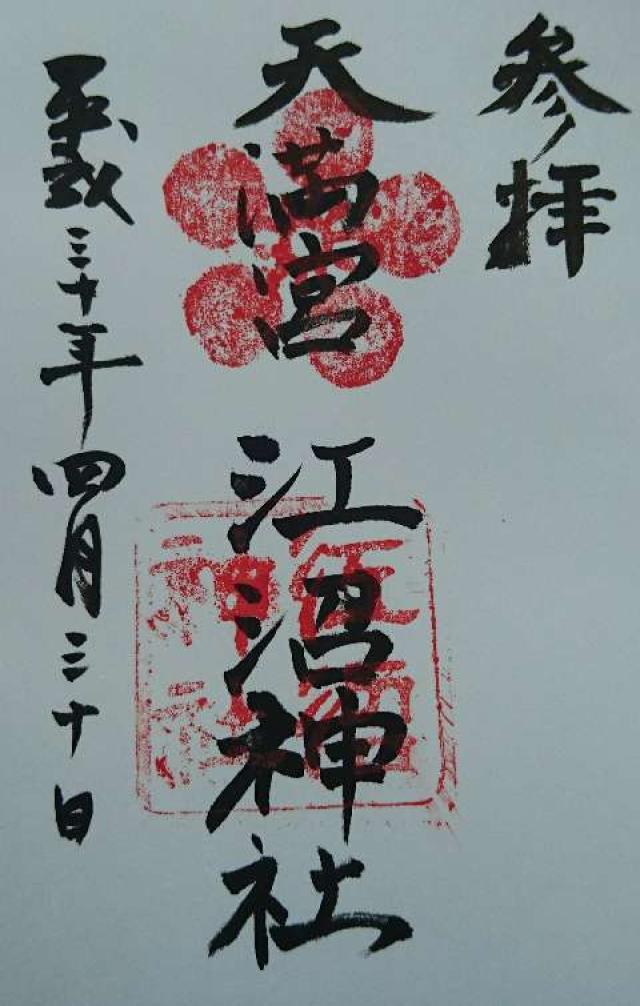 参拝
天満宮
江沼神社
平成三十年四月三十日